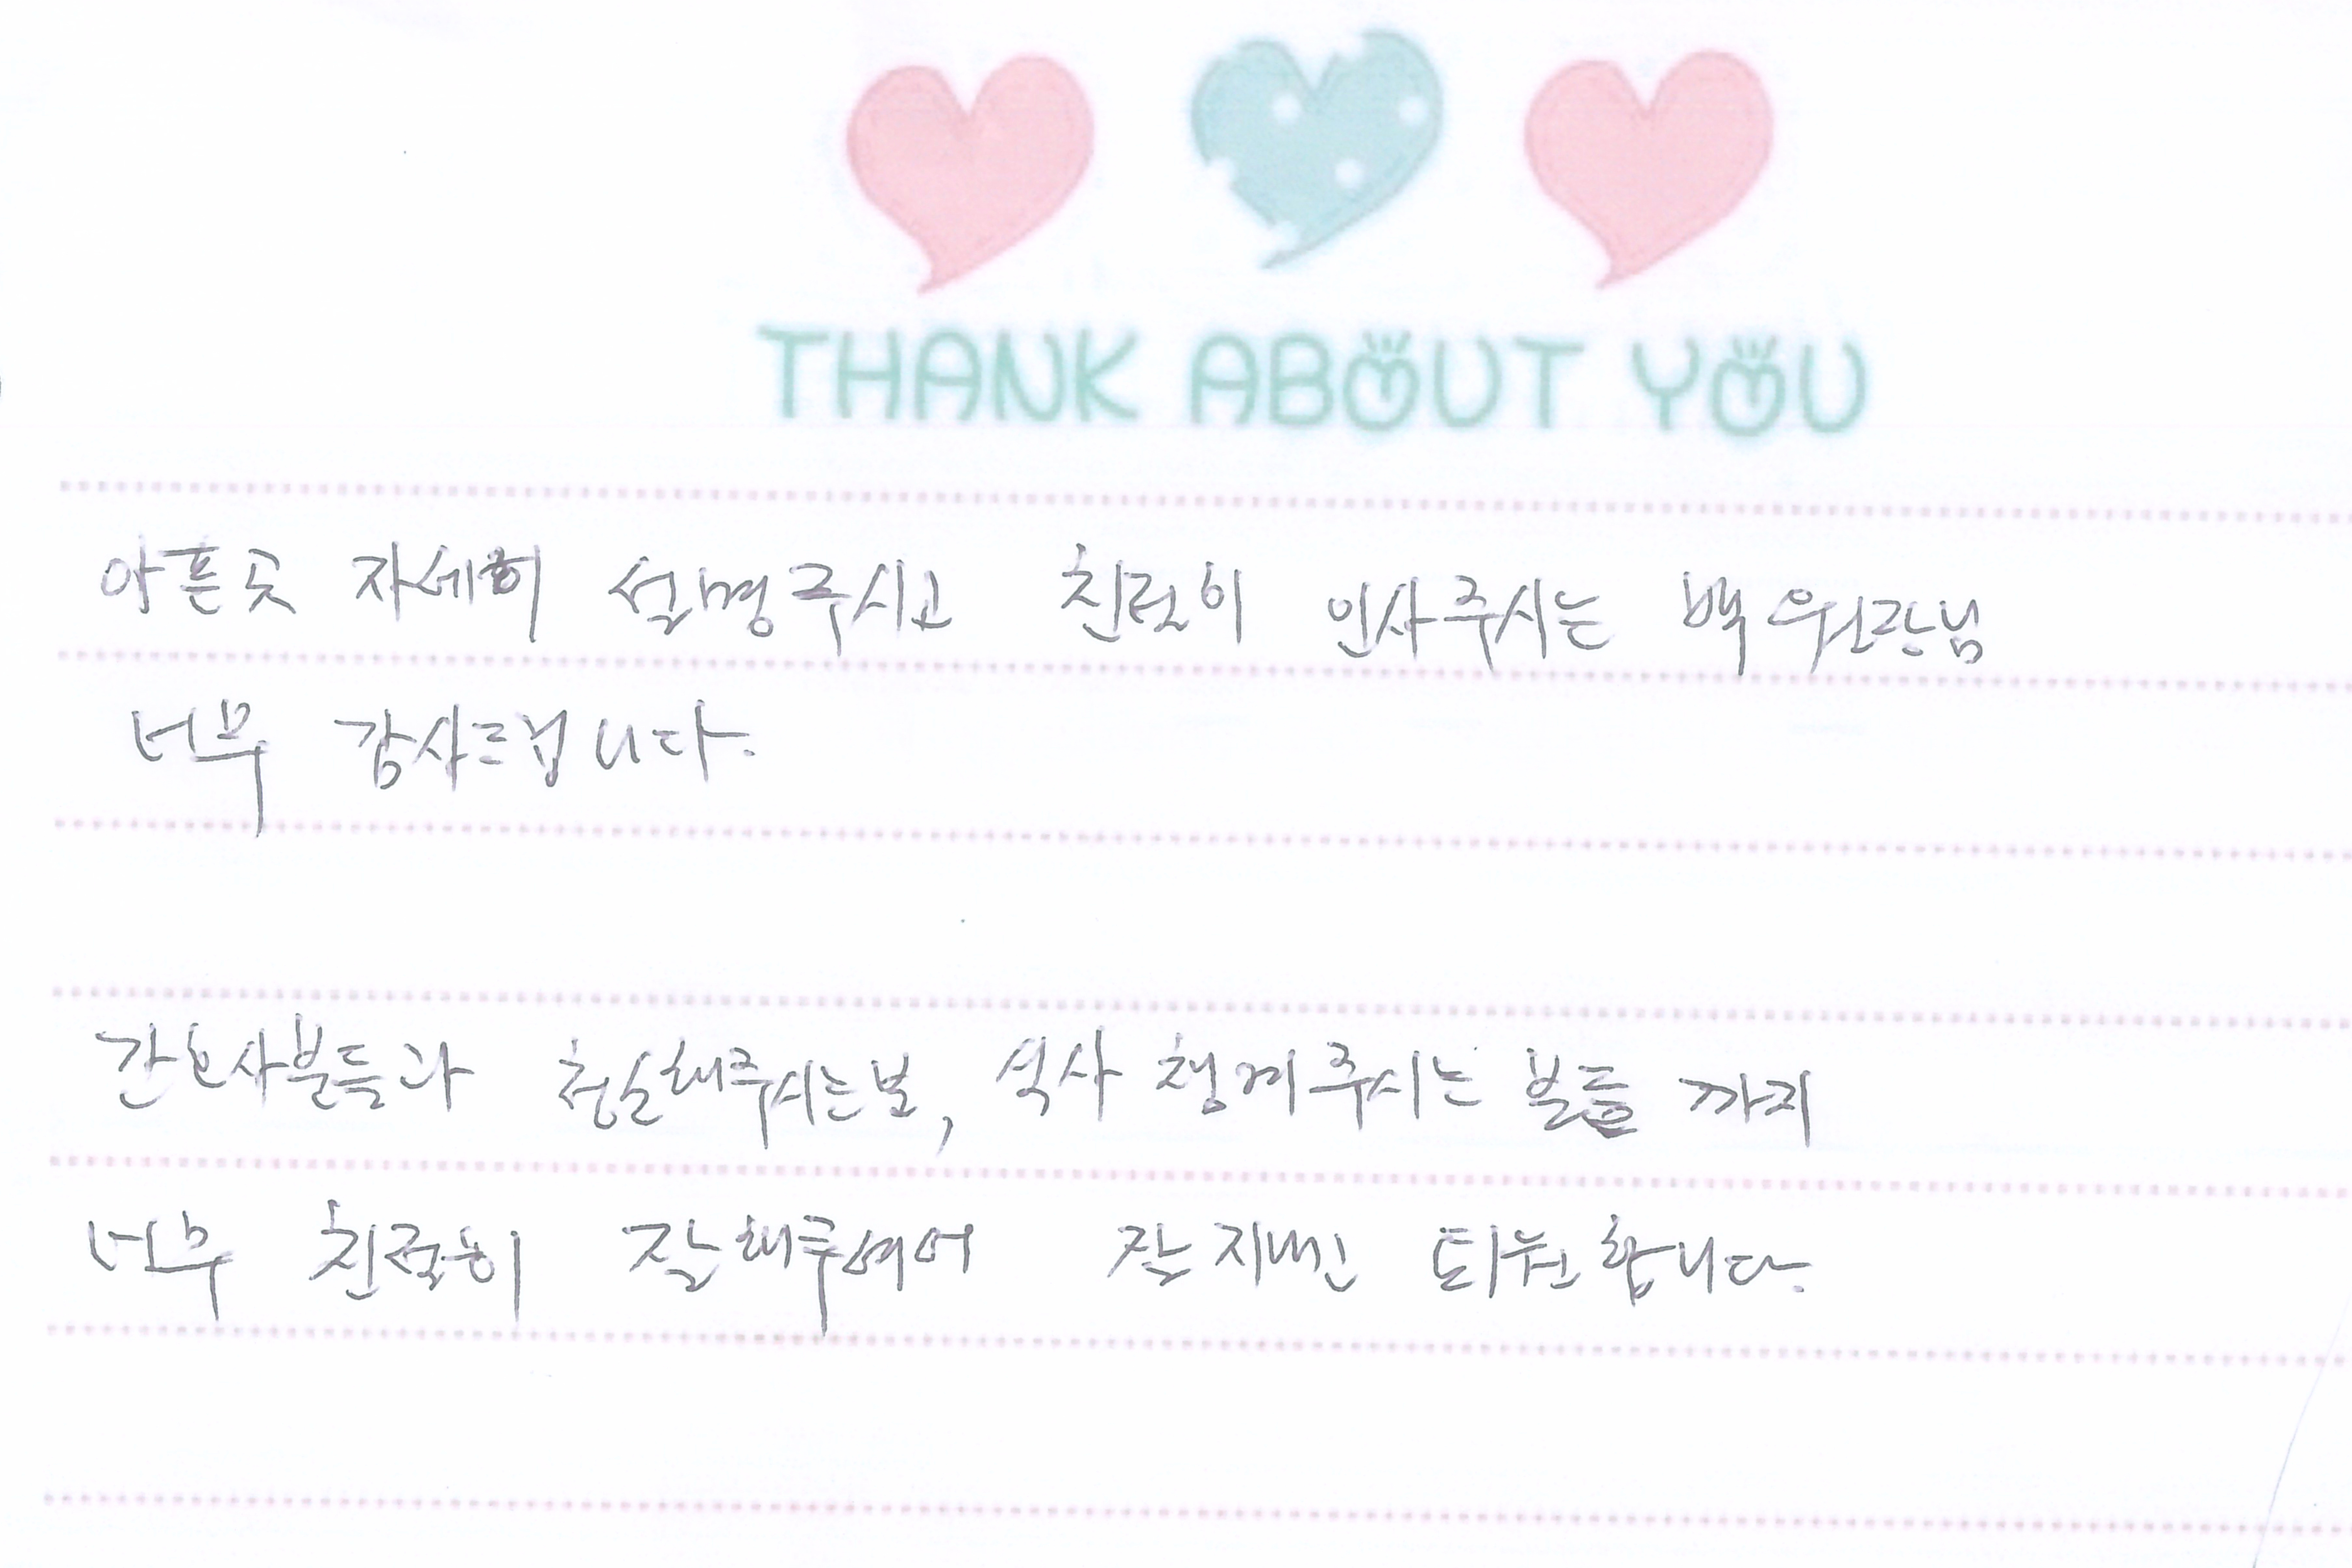 THANK ABOUT YOU
아픈곳 자세히 설명주시고 친절히 인사주시는 백원장님
너무 감사드립니다.
간호사분들과 청소해주시는분, 식사 챙겨주시는 분들 까지
너무 친절히 잘해주셔어 잘 지내고 퇴원합니다.